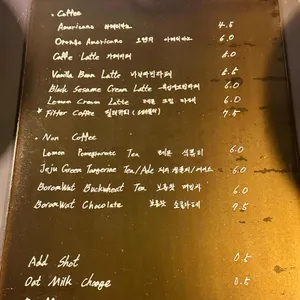 • Coffee
Americano 아메리카노 4.5
Orange Americano 오렌지 아메리카노 6.0
Caffe Latte 카페라떼 5.0
Vanilla Bean Latte 바닐라빈라떼 5.5
Black Sesame Cream Latte 6.0
Lemon Cream Latte 레몬 크림 라떼 6.0
* Filter Coffee 필터커피 7.5
• Non Coffee
Lemon Pomegranate Tea 레몬 석류티 6.0
Jeju Green Tangerine Tea/Ade 6.0
BoromWat Buckwheat Tea 보롬왓 메밀차 6.0
BoromWat Chocolate 보롬왓 초콜라떼 7.5
Add Shot 0.5
Oat Milk Change 0.5